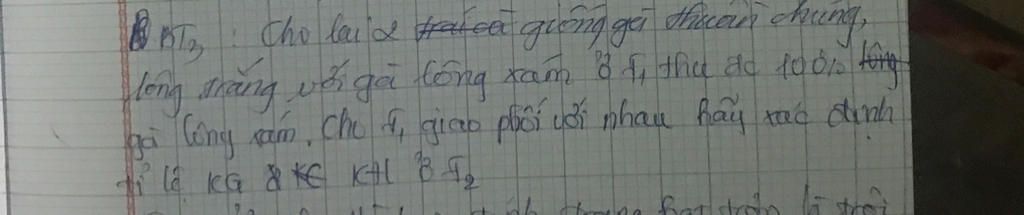 BT3: Cho lai 2 giống gà thuần chủng,
lông trắng với gà lông xám ở F1 thu đc 100%
gà lông xám. Cho F1 giao phối với nhau hãy xác định
tỉ lệ KG & KH ở F2